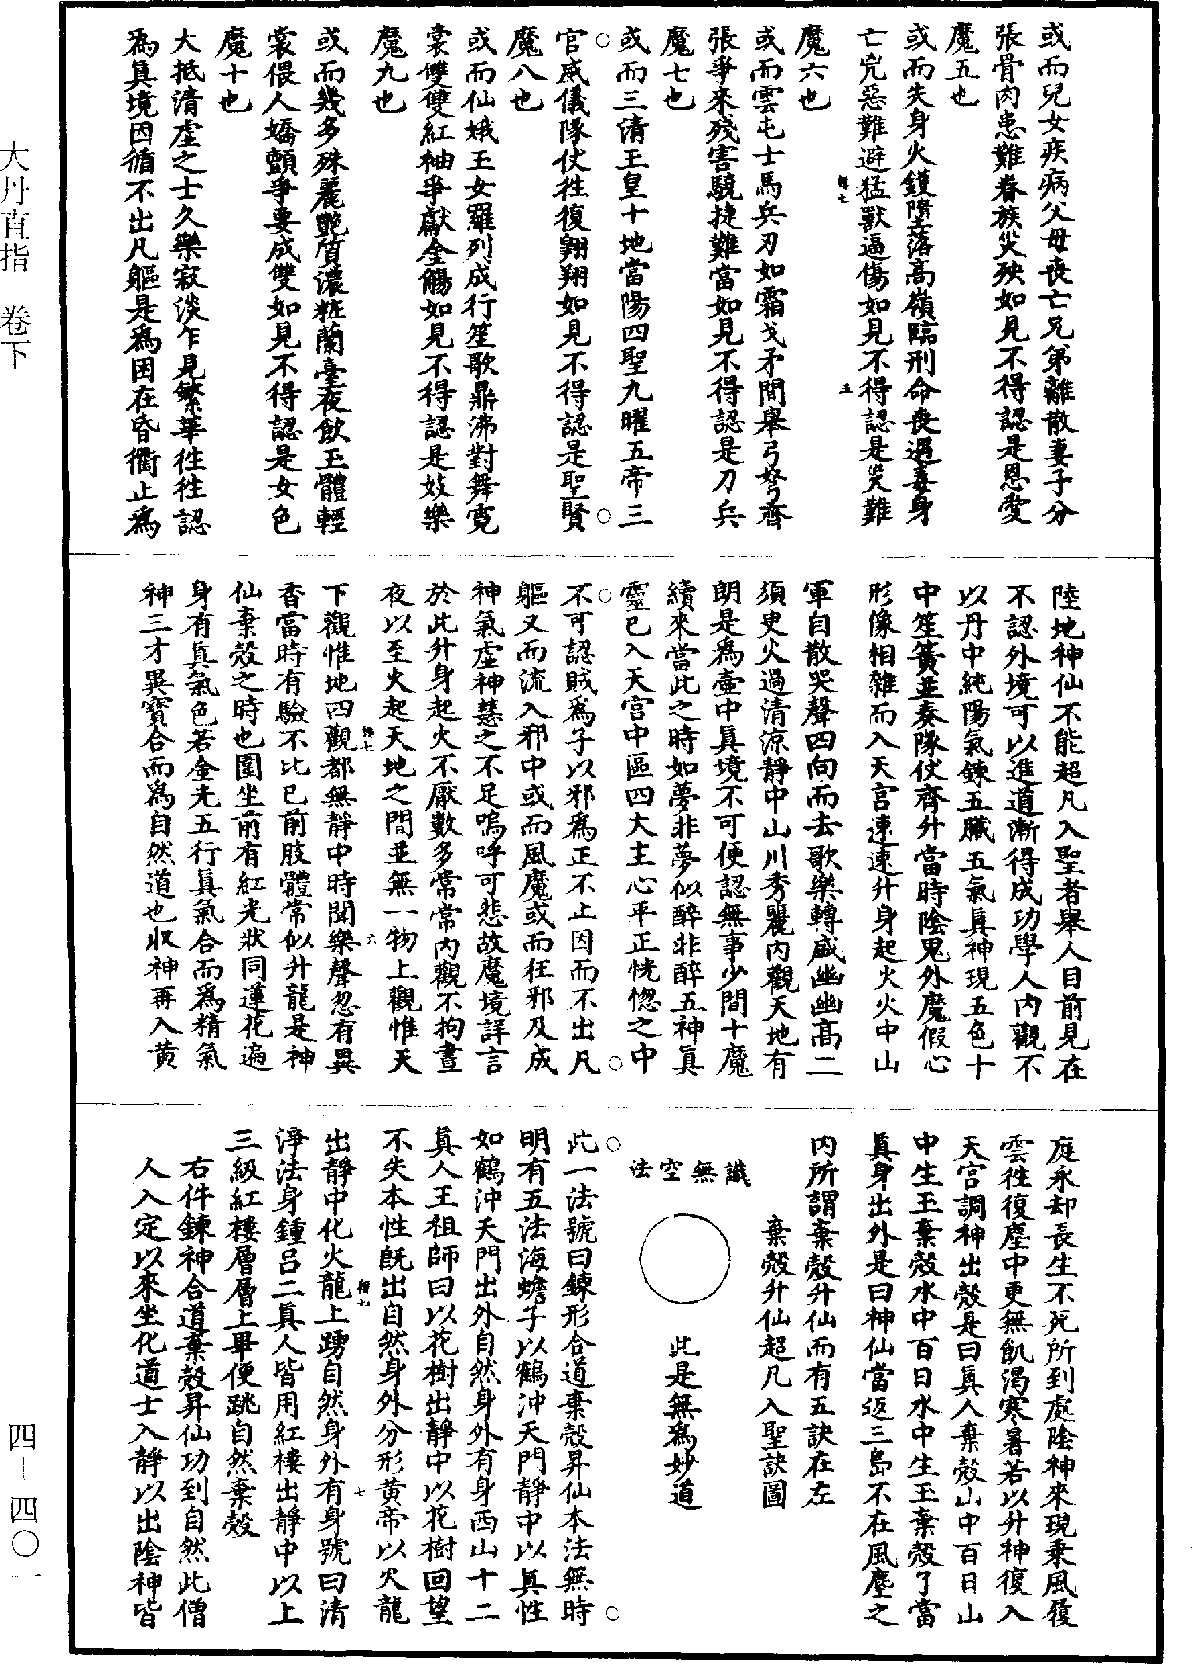 大丹直指　卷下
或而兒女疾病父母喪亡兄弟離散妻子分
張骨肉患難眷族災殃如見不得認是恩愛
魔五也
或而失身火鑊墮落高嶺臨刑命喪遇毒身
亡兇惡難避猛獸逼傷如見不得認是災難
魔六也
或而雲屯士馬兵刃如霜戈矛間舉弓弩齊
張爭來殘害驍捷難當如見不得認是刀兵
魔七也
或而三清玉皇十地當陽四聖九曜五帝三
官威儀隊仗往復翱翔如見不得認是聖賢
魔八也
或而仙娥玉女羅列成行笙歌鼎沸對舞霓
裳雙雙紅袖爭獻金觴如見不得認是妓樂
魔九也
或而幾多殊麗艷質濃粧蘭臺夜飲玉體輕
裳偎人嬌顫爭要成雙如見不得認是女色
魔十也
大抵清虛之士久樂寂淡乍見繁華往往認
爲眞境因循不出凡軀是爲困在昏衢止爲
陸地神仙不能超凡入聖者舉人目前見在
不認外境可以進道漸得成功學人內觀不
以丹中純陽氣鍊五臟五氣眞神現五色十
中笙簧並奏隊仗齊升當時陰鬼外魔假心
形像相雜而入天宮速速升身起火火中山
軍自散哭聲四向而去歌樂轉盛幽幽高二
須臾火過清涼靜中山川秀麗內觀天地有
朗是爲壷中眞境不可便認無事少間十魔
續來當此之時如夢非夢似醉非醉五神眞
靈已入天宮中區四大主心平正恍惚之中
不可認賊爲子以邪爲正不止因而不出凡
軀又而流入邪中或而風魔或而狂邪及成
神氣虛神慧之不足嗚呼可悲故魔境詳言
於此升身起火不厭數多常常內觀不拘晝
夜以至火起天地之間並無一物上觀惟天
下觀惟地四觀都無靜中時聞樂聲忽有異
香當時有驗不比已前肢體常似升龍是神
仙棄殼之時也圍坐前有紅光狀同蓮花遍
身有眞氣色若金光五行眞氣合而爲精氣
神三才異寶合而爲自然道也收神再入黃
庭永却長生不死所到處陰神來現乘風復
雲往復塵中更無飢渴寒暑若以升神復入
天宮調神出殼是曰眞人棄殼山中百日山
中生玉棄殼水中百日水中生玉棄殼了當
眞身出外是曰神仙當返三島不在風塵之
內所謂棄殼升仙而有五訣在左
棄殼升仙超凡入聖訣圖
識無空法
此是無爲妙道
此一法號曰鍊形合道棄殼昇仙本法無時
明有五法海蟾子以鶴沖天門靜中以眞性
如鶴沖天門出外自然身外有身西山十二
眞人王祖師曰以花樹出靜中以花樹回望
不失本性旣出自然身外分形黃帝以火龍
出靜中化火龍上踴自然身外有身號曰清
淨法身鍾呂二眞人皆用紅樓出靜中以上
三級紅樓層層上畢便跳自然棄殼
右件鍊神合道棄殼昇仙功到自然此僧
人入定以來坐化道士入靜以出陰神皆
四—四〇一